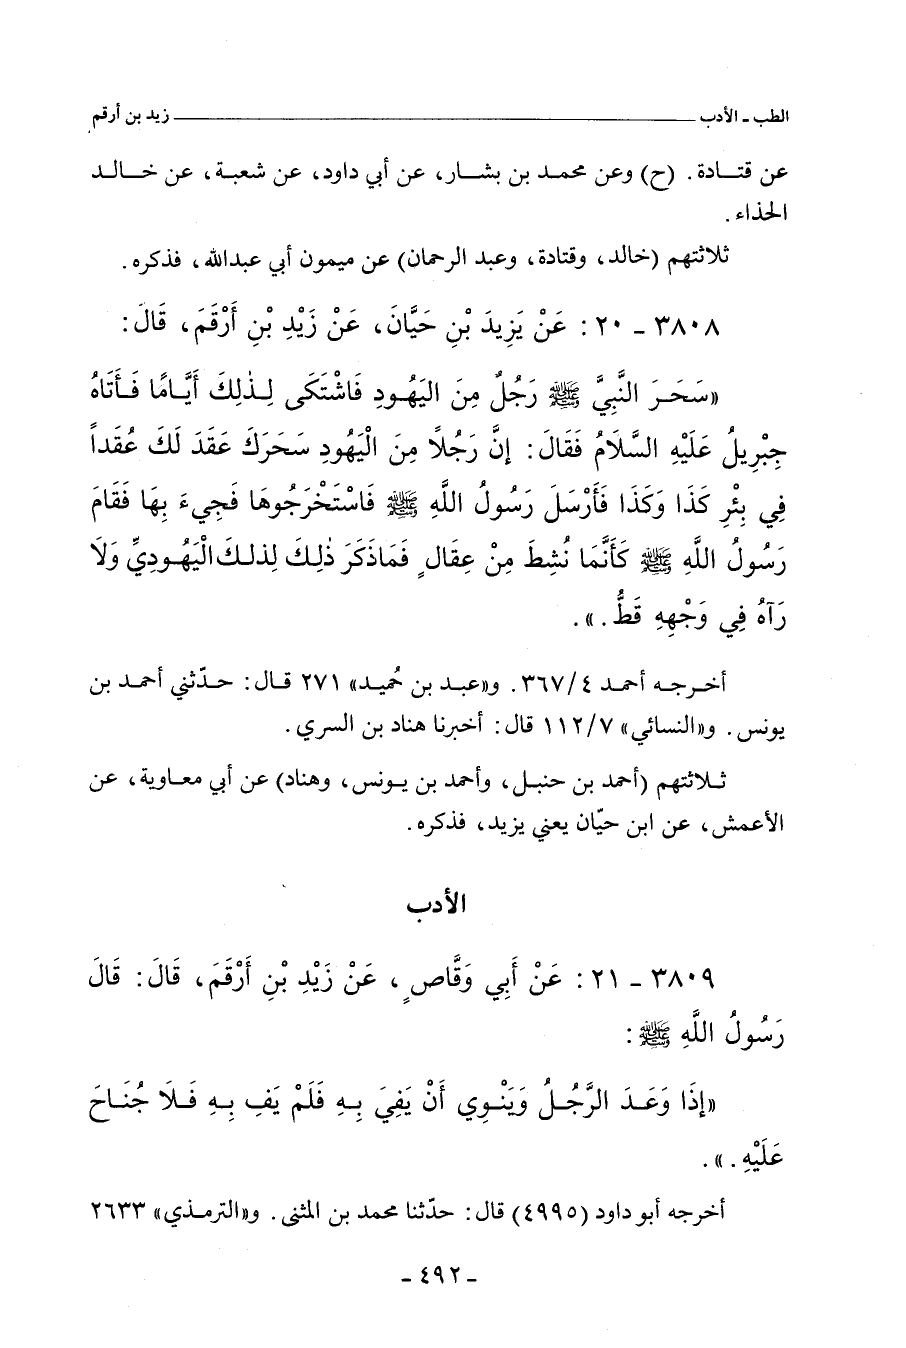 الطب - الأدب ـــــــــــــــــــــــــــــــــــــــــ زيد بن أرقم
عن قتـادة. (ح) وعن محمـد بن بشـار، عن أبي داود، عن شعبـة، عن خـالـد
الحذاء.
ثلاثتهم (خالد، وقتادة، وعبد الرحمان) عن ميمون أبي عبدالله، فذكره.
٣٨٠٨ - ٢٠ : عَنْ يَزِيدَ بْنِ حَيَّانَ، عَنْ زَيْدِ بْنِ أَرْقَمَ، قَالَ:
«سَحَـرَ النَّبِيَّ ﷺ رَجُلٌ مِنَ اليَهُـودِ فَاشْتَكَى لِـذٰلِكَ أَيَّـامًا فَـأَتَاهُ
جِبْرِيلُ عَلَيْهِ السَّلَامُ فَقَالَ: إِنَّ رَجُلاً مِنَ الْيَهُودِ سَحَرَكَ عَقَدَ لَكَ عُقَداً
فِي بِئْرِ كَذَا وَكَذَا فَأَرْسَلَ رَسُولُ اللَّهِ ﷺ فَاسْتَخْرَجُوهَا فَجِيءَ بِهَا فَقَامَ
رَسُولُ اللَّهِ ﷺ كَأَنَّمَا نُشِطَ مِنْ عِقَالٍ فَمَاذَكَرَ ذٰلِكَ لِذلـكَ الْيَهُـودِيِّ وَلَا
رَآهُ فِي وَجْهِهِ قَطُّ.».
أخـرجـه أحمـد ٤/٣٦٧. و«عبـد بن حُميـد» ٢٧١ قـال: حـدّثني أحمـد بن
يونس. و«النسائي» ٧/١١٢ قال: أخبرنا هناد بن السري.
ثـلاثتهم (أحمد بن حنبـل، وأحمد بن يـونس، وهناد) عن أبي معـاوية، عن
الأعمش، عن ابن حيّان يعني يزيد، فذكره.
الأدب
٣٨٠٩ - ٢١ : عَنْ أَبِي وَقَّاصٍ، عَنْ زَيْدِ بْنِ أَرْقَمَ، قَالَ: قَالَ
رَسُولُ اللَّهِ ﷺ:
«إِذَا وَعَـدَ الرَّجُـلُ وَيَنْـوِي أَنْ يَفِيَ بِـهِ فَلَمْ يَفِ بِـهِ فَـلَا جُنَـاحَ
عَلَيْهِ.».
أخرجه أبو داود (٤٩٩٥) قال: حدّثنا محمد بن المثنى. و«الترمـذي» ٢٦٣٣
- ٤٩٢ -